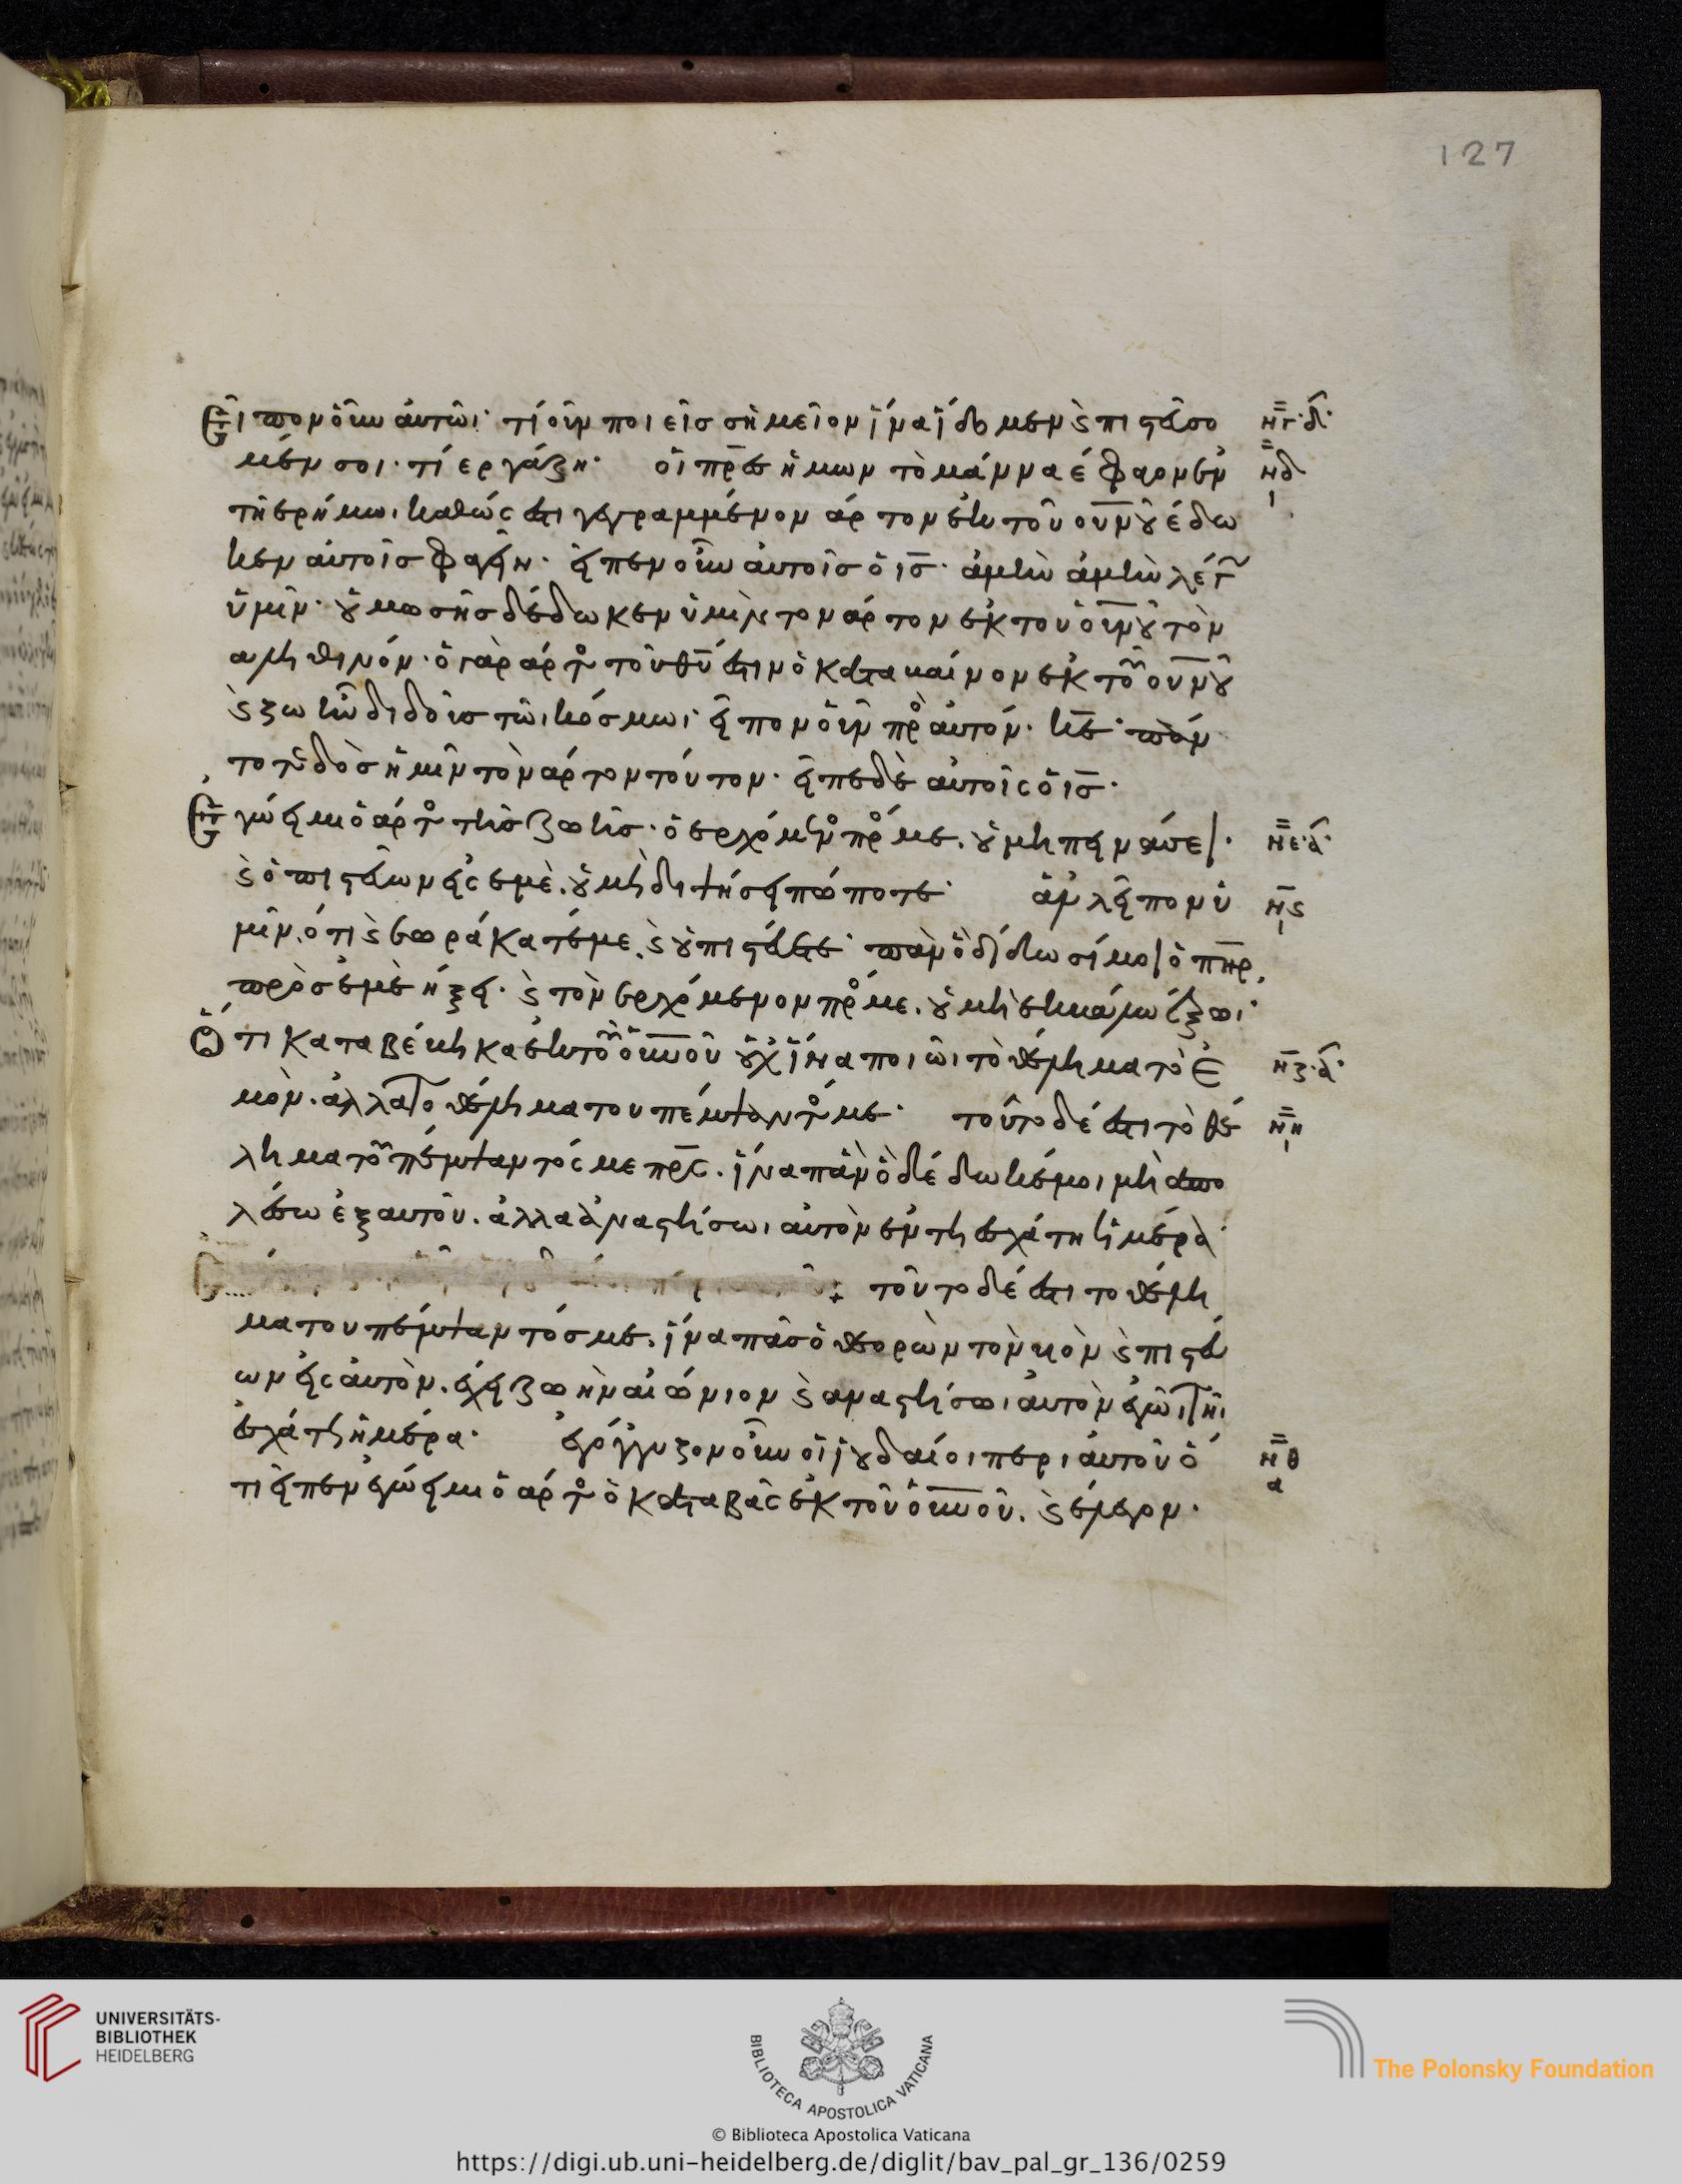 127
Εἶπον οὖν αὐτῶι· τί οὖν ποιεῖσ σημεῖον ἵνα ἴδωμεν ϗ πιστεύσο ν̅γ·δ·
μέν σοι· τί εργάζη· οἱ πρ̅εσ ἡμων τὸ μάννα έφαγον εν ν̅δ
τῆ ερήμω· καθώς εστι γεγραμμένον άρτον εκ τοῦ ουν̅ου έδω ι
κεν αὐτοῖσ φαγεῖν· εἶπεν οὖν αὐτοῖσ ὁ ις̅· ἀμὴν ἀμὴν λέγω
ὑμῖν· ου μωσῆσ δέδωκεν ὑμῖν τον άρτον εκ του οὐν̅ου τὸν
αληθινόν· ὁ γὰρ άρτος τοῦ θυ̅ εστιν ὁ καταβαίνον εκ τοῦ ουν̅ου
ϗ ζωὴν διδοὺσ τῶι κόσμωι· εἶπον οὖν πρὸς αὐτόν· κε̅· πάν
τοτε δὸσ ἡμῖν τὸν άρτον τούτον· εἶπε δὲ αὐτοῖς ὁ ις̅·
Εγώ ειμι ὁ άρτος τῆσ ζωῆσ· ὁ ερχόμενος πρός με. ου μη πεινάσει· ν̅ε·α·
ϗ ὁ πιστεύων εις εμὲ. ου μὴ διψήσει πώποτε· ἀλλ εἶπον ὑ ν̅ς
μῖν. ότι ϗ εωράκατέ με. ϗ ου πιστεύετε· πᾶν ὃ δίδωσί μοι ὁ πηρ̅. ι
πρὸσ εμὲ ήξει· ϗ τὸν ερχόμενον πρός με. ου μὴ εκβάλω έξωι·
Ότι καταβέβηκα εκ τοῦ ουν̅οῦ οὐχ ἵνα ποιῶι τὸ θέλημα τὸ ε ν̅ζ·α·
μὸν. ἀλλα το θέλημα του πέμψαντός με· τοῦτο δέ εστι τὸ θέ ν̅η
λημα τοῦ πέμψαντός με πρ̅ς. ἵνα πᾶν ὃ δέδωκέ μοι μὴ απο ι
λέσω εξ αυτοῦ. ἀλλα ἀναστήσω αὐτὸν εν τη εσχάτη ἡμέρα·
τοῦτο δέ εστι το θέλη
μα του πέμψαντόσ με. ἵνα πᾶσ ὁ θεορὼν τὸν υἱὸν ϗ πιστεύ
ων εις αὐτὸν. έχει ζωὴν αἰώνιον ϗ αναστήσωι αὐτὸν εγὼ τῆι
εσχάτη ἡμέρα· εγόγγυζον οὖν οἱ ἰουδαίοι περι αὐτοῦ ὁ ν̅θ
τι εἶπεν εγώ ειμι ὁ άρτος ὁ καταβὰς εκ τοῦ οὐν̅οῦ. ϗ έλεγον· α
UNIVERSITÄTS-
BIBLIOTHEK
HEIDELBERG
BIBLIOTECA APOSTOLICA VATICANA
The Polonsky Foundation
© Biblioteca Apostolica Vaticana
https://digi.ub.uni-heidelberg.de/diglit/bav_pal_gr_136/0259